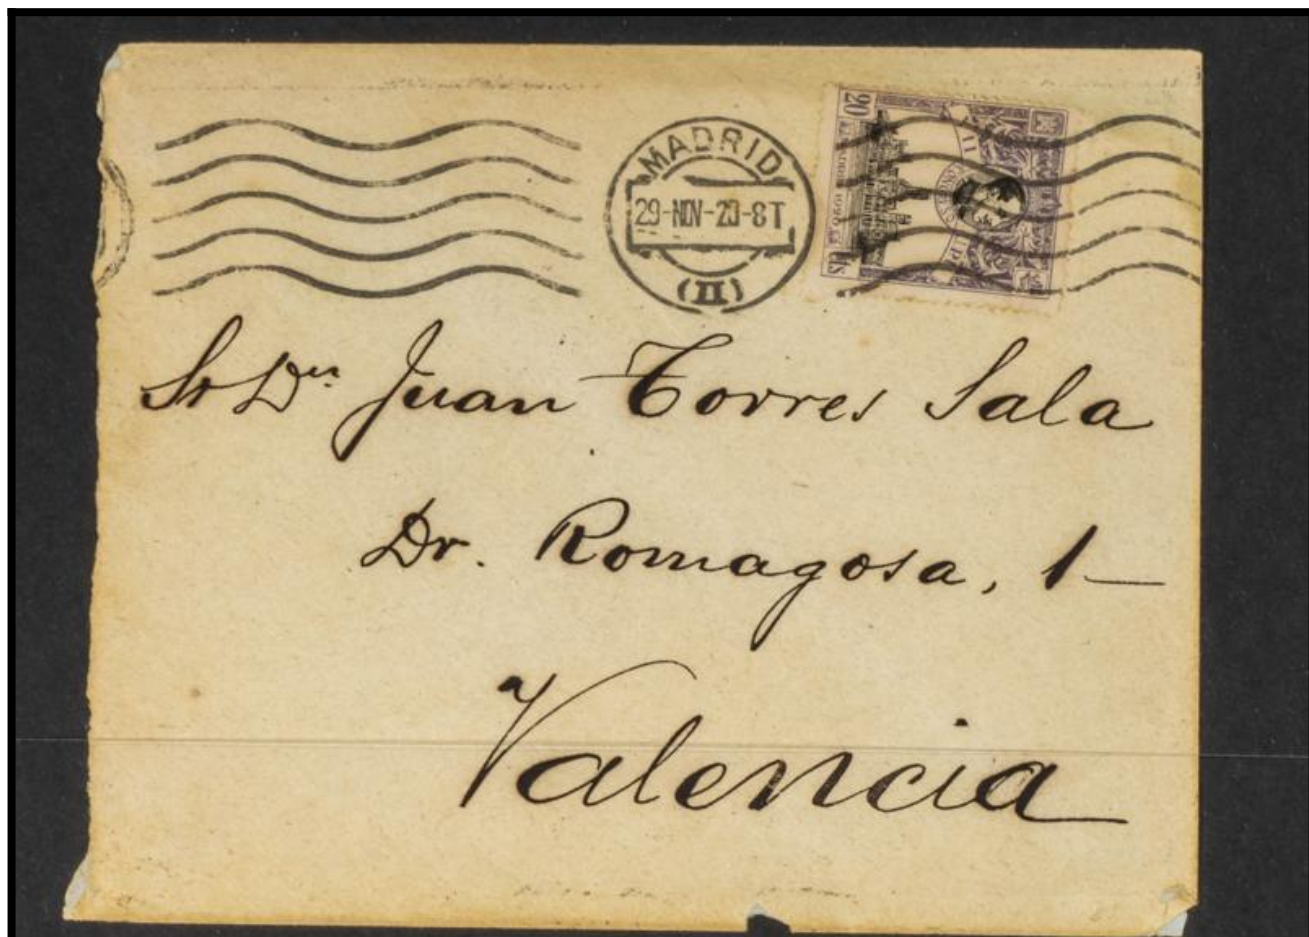 MADRID
29-NOV-20-8T
(II)
20
MADRID 1920
cts
Sr Dn Juan Torres Sala
Dr. Romagosa, 1—
Valencia